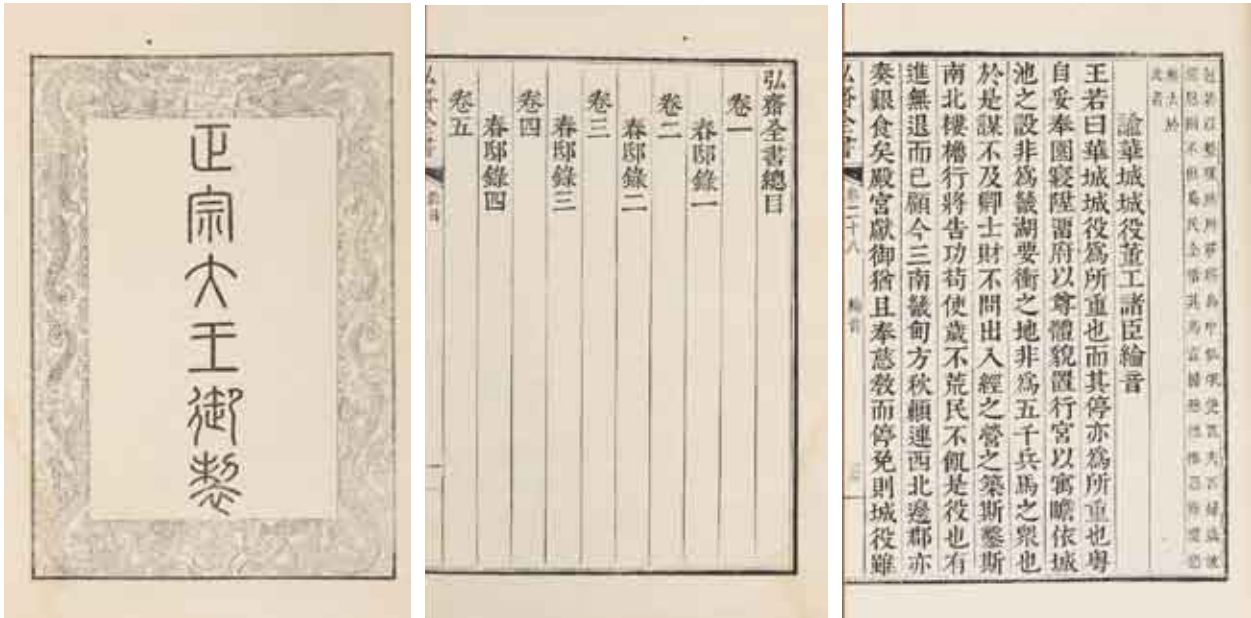 正宗大王御製
弘齋全書總目
卷一
春邸錄一
卷二
春邸錄二
卷三
春邸錄三
卷四
春邸錄四
卷五
弘齋全書
諭華城城役董工諸臣綸音
王若曰華城城役爲所重也而其停亦爲所重也粤
自妥奉園寢陞畱府以尊體貌置行宮以寓瞻依城
池之設非爲畿湖要衝之地非爲五千兵馬之衆也
於是謀不及卿士財不問出入經之營之築斯鑿斯
南北樓櫓行將告功苟使歲不荒民不飢是役也有
進無退而已顧今三南畿甸方秋顚連西北邊郡亦
奏艱食矣殿宮獻御猶且奉慈敎而停免則城役雖
弘齋全書 卷二十八 綸音